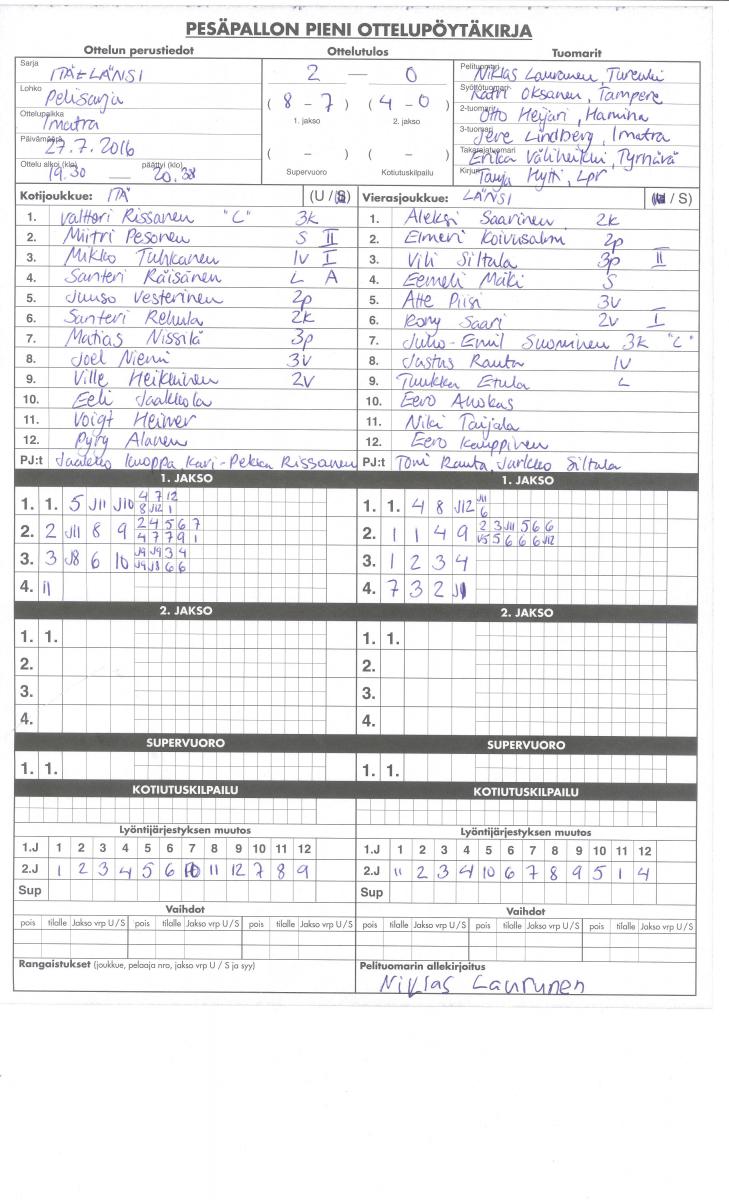 PESÄPALLON PIENI OTTELUPÖYTÄKIRJA
Ottelun perustiedot Ottelutulos Tuomarit
Sarja ITÄ-LÄNSI
2 — 0
Pelituomari Niklas Laurunen, Turenki
Lohko Pelisarja
( 8 - 7 ) ( 4 - 0 )
1. jakso 2. jakso
Syöttötuomari Katri Oksanen, Tampere
Ottelupaikka Imatra
2-tuomari Otto Heijari, Hamina
Päivämäärä 27.7.2016
3-tuomari Jere Lindberg, Imatra
( - ) ( - )
Supervuoro Kotiutuskilpailu
Takarajatuomari Erika Väliheikki, Tyrnävä
Ottelu alkoi (klo) 19.30 — päättyi (klo) 20.38
Kirjuri Tanja Hytti, Lpr
Kotijoukkue: ITÄ (U / S)
Vierasjoukkue: LÄNSI (U / S)
1. Valtteri Rissanen "C" 3K
2. Miitri Pesonen S II
3. Mikko Tuhkanen 1V I
4. Santeri Räisänen L A
5. Juuso Vesterinen 2p
6. Santeri Rekula 2K
7. Matias Nissilä 3p
8. Joel Niemi 3V
9. Ville Heikkinen 2V
10. Eeli Jaakkola
11. Voigt Heiner
12. Pyry Alanen
PJ:t Jaakko Knoppa, Kari-Pekka Rissanen
1. Aleksi Saarinen 2K
2. Elmeri Koivusalmi 2p
3. Vili Siltala 3p II
4. Eemeli Mäki S
5. Atte Piisi 3V
6. Rony Saari 2V I
7. Juho-Emil Suominen 3K "C"
8. Justus Rauta 1V
9. Tuukka Etula L
10. Eero Ahokas
11. Niki Taijala
12. Eero Kauppinen
PJ:t Toni Rauta, Jarkko Siltala
1. JAKSO
1. 1. 5 J11 J10 4 7 12
8 J12 1
2. 2 J11 8 9 2 4 5 6 7
4 7 7 9 1
3. 3 J8 6 10 J9 J9 3 4
J9 J8 6 6
4. 11
1. JAKSO
1. 1. 4 8 J12 J11
6
2. 1 1 4 9 2 3 J11 5 6 6
V5 5 6 6 6 J12
3. 1 2 3 4
4. 7 3 2 J1
2. JAKSO
1. 1.
2.
3.
4.
2. JAKSO
1. 1.
2.
3.
4.
SUPERVUORO
1. 1.
SUPERVUORO
1. 1.
KOTIUTUSKILPAILU
KOTIUTUSKILPAILU
Lyöntijärjestyksen muutos
1.J 1 2 3 4 5 6 7 8 9 10 11 12
2.J 1 2 3 4 5 6 10 11 12 7 8 9
Sup
Lyöntijärjestyksen muutos
1.J 1 2 3 4 5 6 7 8 9 10 11 12
2.J 11 2 3 4 10 6 7 8 9 5 1 4
Sup
Vaihdot
pois tilalle Jakso vrp U / S pois tilalle Jakso vrp U / S pois tilalle Jakso vrp U / S
Vaihdot
pois tilalle Jakso vrp U / S pois tilalle Jakso vrp U / S pois tilalle Jakso vrp U / S
Rangaistukset (joukkue, pelaaja nro, jakso vrp U / S ja syy)
Pelituomarin allekirjoitus
Niklas Laurunen